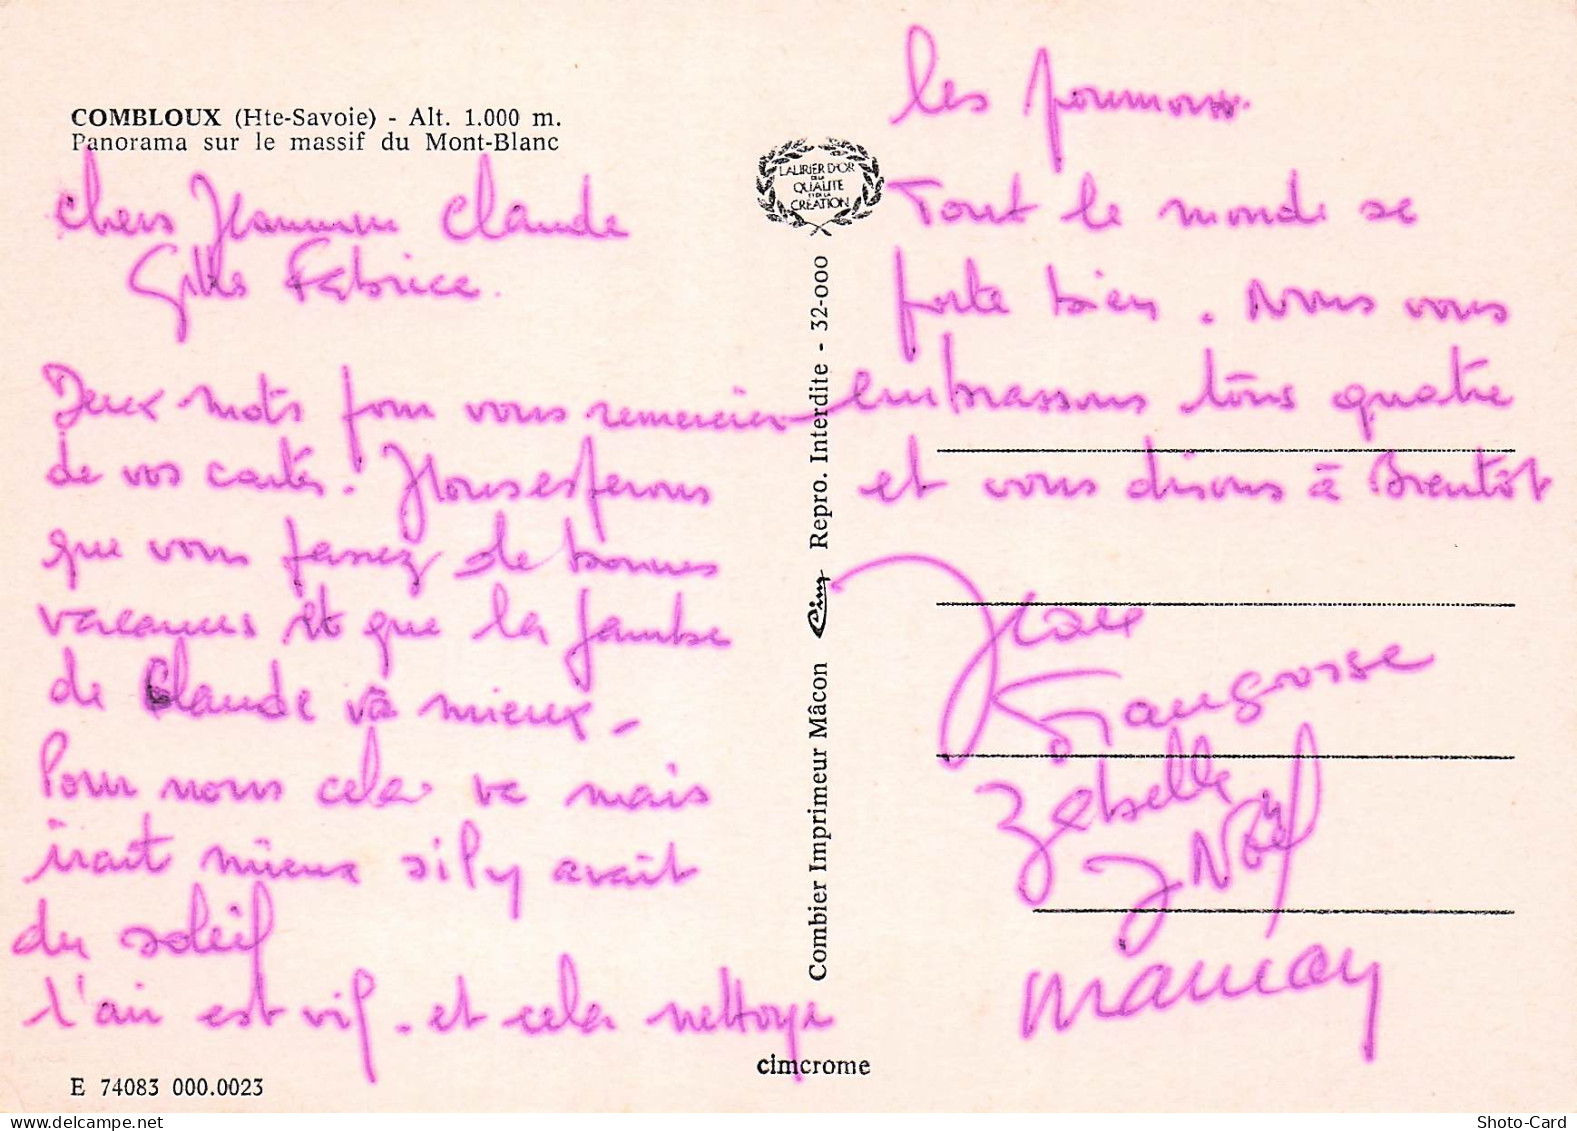 COMBLOUX (Hte-Savoie) - Alt. 1.000 m.
Panorama sur le massif du Mont-Blanc
Chers Jeannine Claude
Gilles Fabrice.
Deux mots pour vous remercier
de vos cartes. Nous esperons
que vous passez de bonnes
vacances et que la jambe
de Claude va mieux -
Pour nous cela va mais
irait mieux s'il y avait
du soleil
L'air est vif. et cela nettoye
les poumons.
Tout le monde se
porte bien. Nous vous
embrassons tous quatre
et vous disons à Bientôt
LAURIER D'OR
DE LA
QUALITE
ET DE LA
CRÉATION
Combier Imprimeur Mâcon Cim Repro. Interdite - 32-000
Françoise
Zabelle
Noël
cimcrome
E 74083 000.0023
Shoto-Card